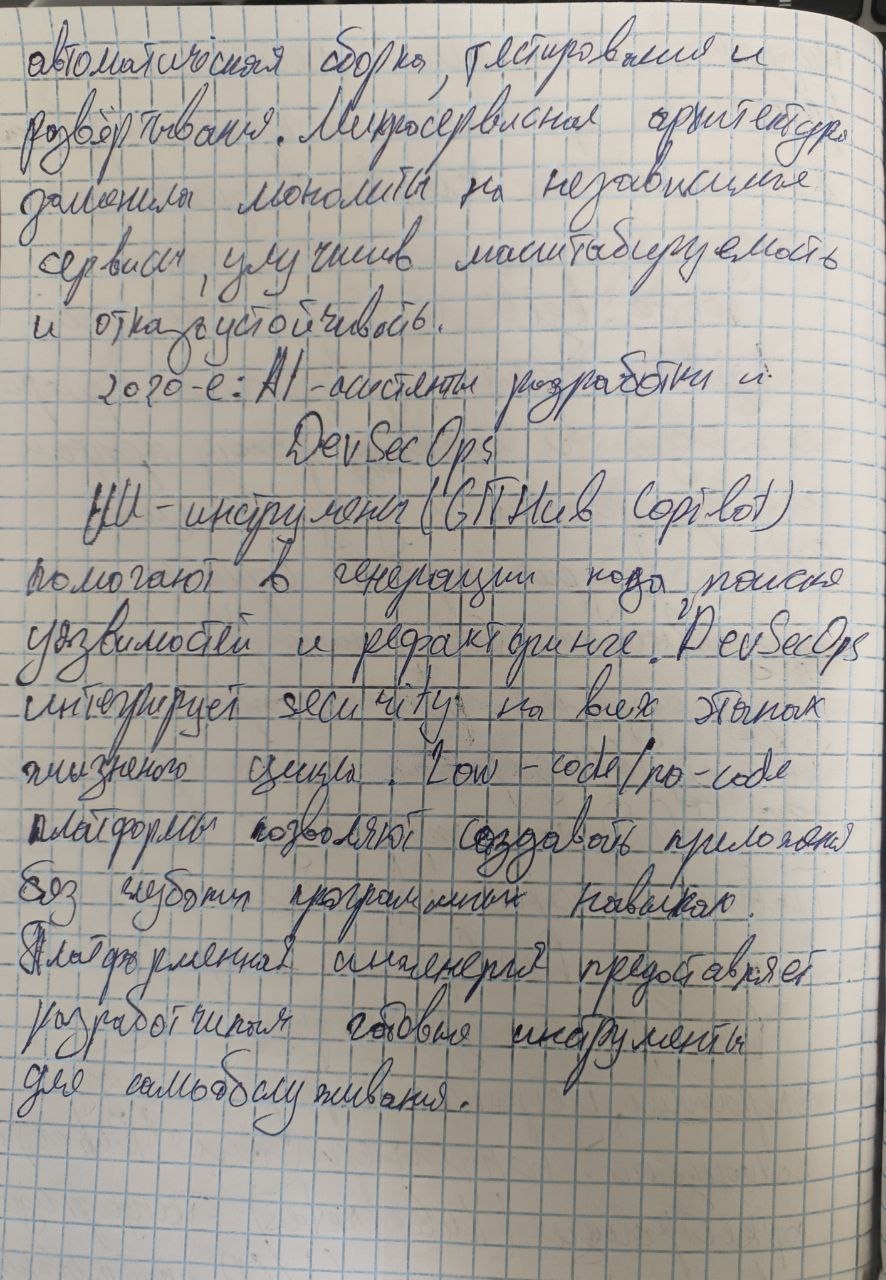 автоматическая сборка, тестирования и
развёртывания. Микросервисная архитектура
заменила монолиты на независимые
сервисы, улучшив масштабируемость
и отказъустойчивость.
2020-е: AI-асистенты разработки и
DevSecOps
ИИ-инструменты (GITHub Copilot)
помогают в генерации кода, поиска
уязвимостей и рефакторинге. DevSecOps
интегрирует security на всех этапах
жизненого цикла. Low-code/no-code
платформы позволяют создавать приложения
без глубоких программных навыков.
Платформенная инженерия предоставляет
разработчикам готовые инструменты
для самообслуживания.